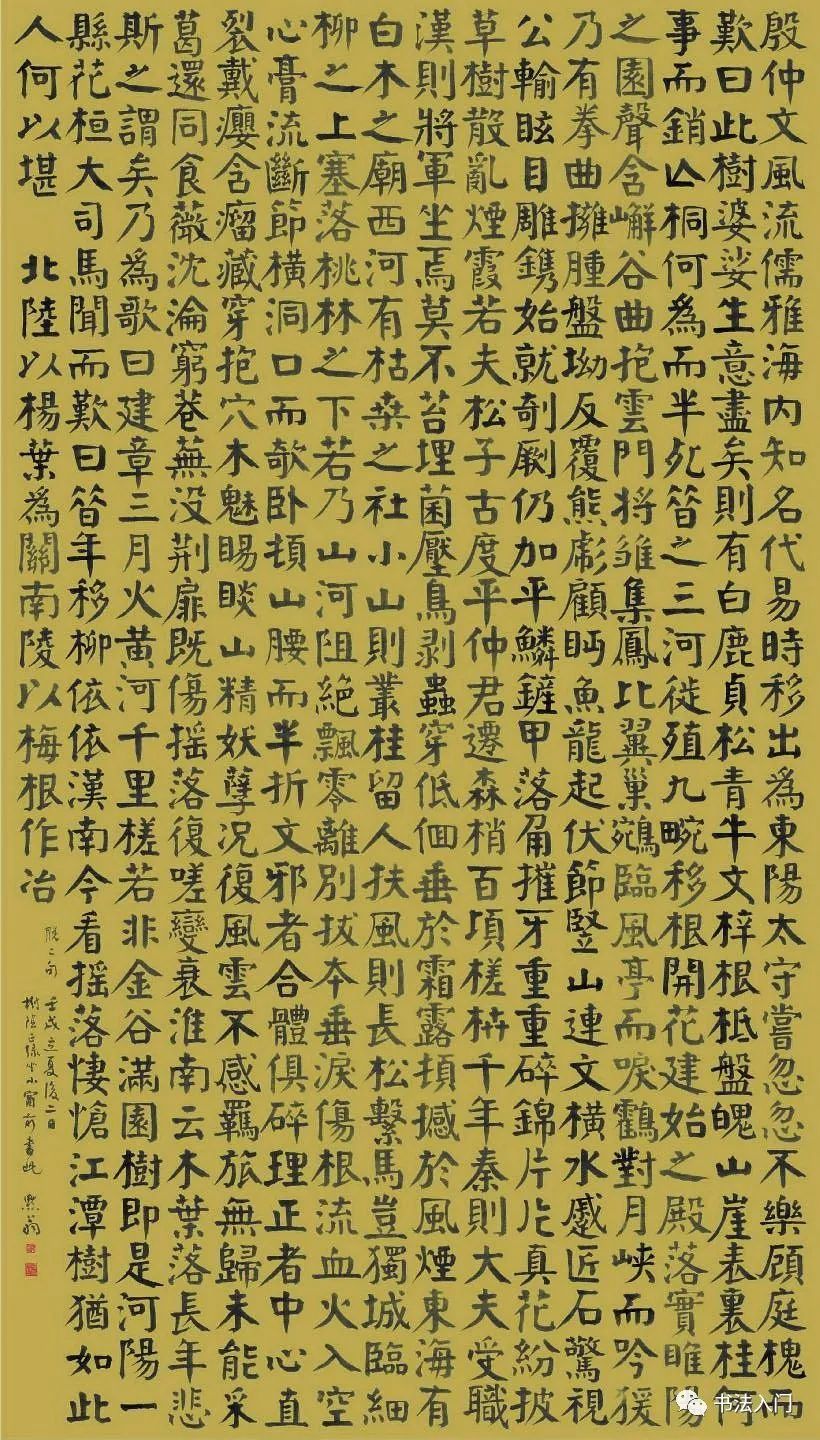 殷仲文風流儒雅海内知名代易時移出為東陽太守嘗忽忽不樂顧庭槐而
歎曰此樹婆娑生意盡矣則有白鹿貞松青牛文梓根柢盤魄山崖表裏桂何
事而銷亡桐何為而半死昔之三河徙殖九畹移根開花建始之殿落實睢陽
之園聲含嶰谷曲抱雲門将雏集鳳比翼巢鵷臨風亭而唳鶴對月峡而吟猨
乃有拳曲擁腫盤坳反覆熊彪顧眄魚龍起伏節竪山連文横水蹙匠石驚視
公輸眩目雕鎸始就剞劂仍加平鱗鏟甲落角摧牙重重碎錦片片真花紛披
草樹散亂煙霞若夫松子古度平仲君遷森梢百頃槎枿千年秦則大夫受職
漢則將軍坐焉莫不苔埋菌壓鳥剥蟲穿低佪垂於霜露頓撼於風煙東海有
白木之廟西河有枯桑之社小山則叢桂留人扶風則長松繫馬豈獨城臨細
柳之上塞落桃林之下若乃山河阻絶飄零離別拔本垂淚傷根流血火入空
心膏流斷節横洞口而欹卧頓山腰而半折文邪者合體俱碎理正者中心直
裂戴癭含瘤藏穿抱穴木魅睗睒山精妖孽况復風雲不感羈旅無歸未能采
葛還同食薇沈淪窮巷蕪没荆扉既傷摇落復嗟變衰淮南云木葉落長年悲
斯之謂矣乃為歌曰建章三月火黄河千里槎若非金谷滿園樹即是河陽一
縣花桓大司馬聞而歎曰昔年移柳依依漢南今看摇落悽愴江潭樹猶如此
人何以堪 北陸以楊葉為關南陵以梅根作冶
脱二句 壬戌立夏後二日
樹陰正緑坐小窗前書此 默翁
书法入门